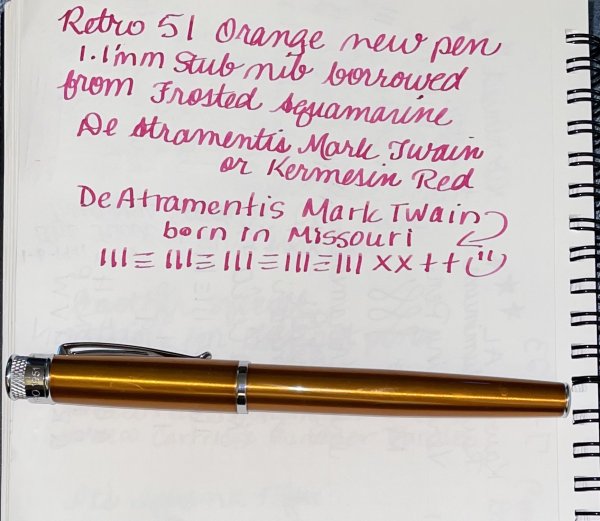 Retro 51 Orange new pen
1.1mm Stub nib borrowed
from Frosted Aquamarine
De Atramentis Mark Twain
or Kermesin Red
De Atramentis Mark Twain
born in Missouri
III≡III≡III≡III≡III XX++
51